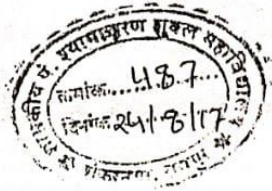 शासकीय पं. श्यामाचरण शुक्ल महाविद्यालय
क्रमांक.....487...
दिनांक.24/8/17